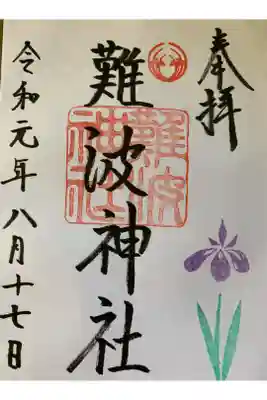 奉拝
難波神社
難波
神社
令和元年八月十七日